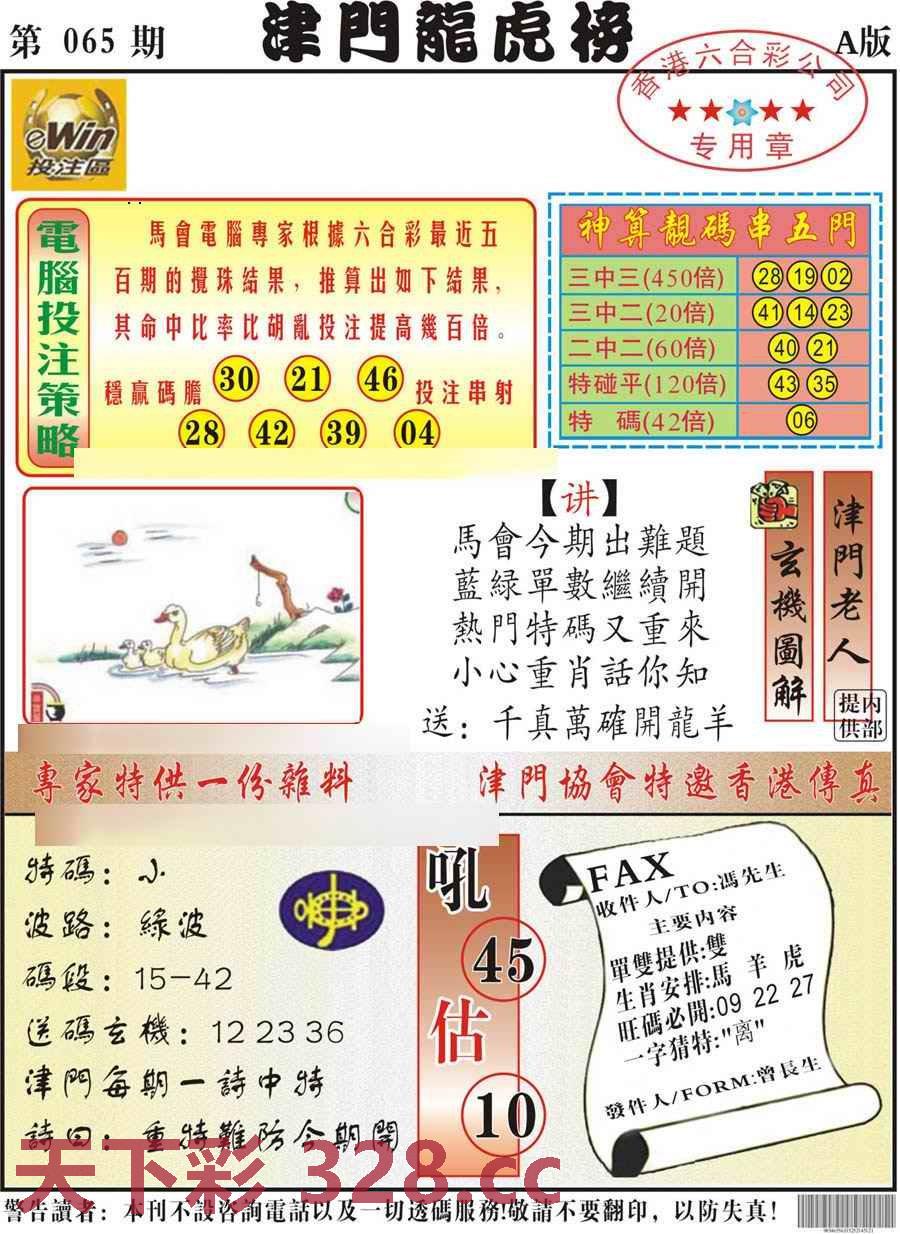 第 065 期
津門龍虎榜
A版
香港六合彩公司
专用章
eWin
投注區
電腦投注策略
馬會電腦專家根據六合彩最近五
百期的攪珠結果，推算出如下結果，
其命中比率比胡亂投注提高幾百倍。
穩贏碼膽 30 21 46 投注串射
28 42 39 04
神算靚碼串五門
三中三(450倍) 28 19 02
三中二(20倍) 41 14 23
二中二(60倍) 40 21
特碰平(120倍) 43 35
特 碼(42倍) 06
【讲】
馬會今期出難題
藍緑單數繼續開
熱門特碼又重來
小心重肖話你知
送：千真萬確開龍羊
玄機圖解
津門老人
内部提供
專家特供一份雜料
津門協會特邀香港傳真
特碼：小
波路：綠波
碼段：15-42
送碼玄機：12 23 36
津門每期一詩中特
詩曰：重特難防今期開
吼
45
估
10
FAX
收件人/TO:馮先生
主要内容
單雙提供:雙
生肖安排:馬 羊 虎
旺碼必開:09 22 27
一字猜特:"离"
發件人/FORM:曾長生
天下彩 328.cc
警告讀者：本刊不設咨詢電話以及一切透碼服務!敬請不要翻印，以防失真！